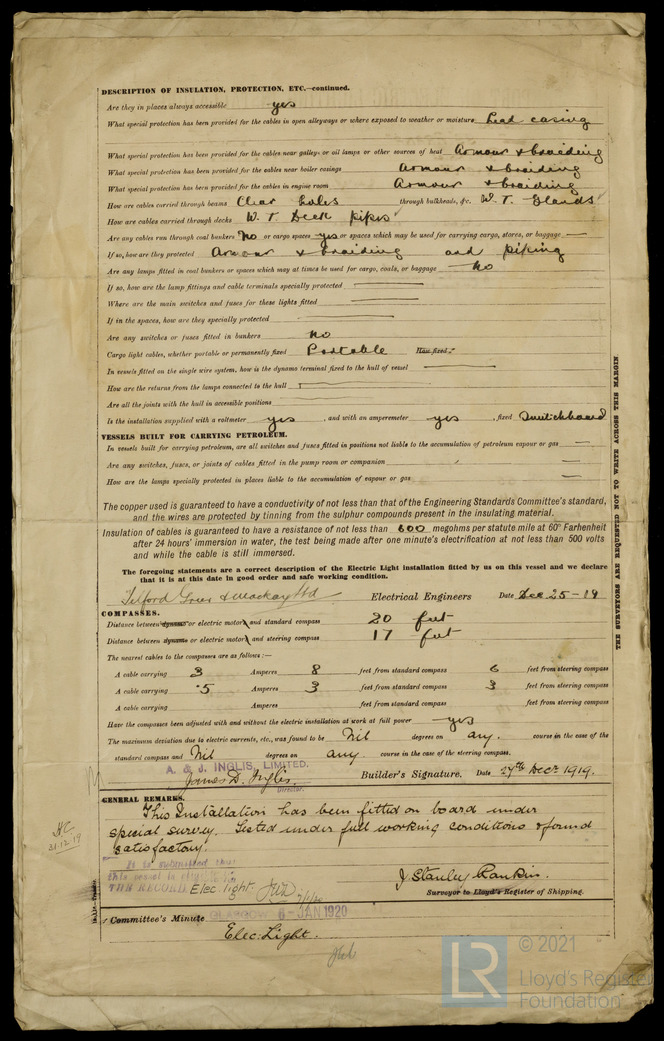 DESCRIPTION OF INSULATION, PROTECTION, ETC.—continued.
Are they in places always accessible yes
What special protection has been provided for the cables in open alleyways or where exposed to weather or moisture Lead casing
What special protection has been provided for the cables near galleys or oil lamps or other sources of heat Armour & braiding
What special protection has been provided for the cables near boiler casings Armour & braiding
What special protection has been provided for the cables in engine room Armour & braiding
How are cables carried through beams Clear holes through bulkheads, &c. W.T. Glands
How are cables carried through decks W.T. Deck pipes
Are any cables run through coal bunkers No or cargo spaces yes or spaces which may be used for carrying cargo, stores, or baggage —
If so, how are they protected Armour & braiding and piping
Are any lamps fitted in coal bunkers or spaces which may at times be used for cargo, coals, or baggage No
If so, how are the lamp fittings and cable terminals specially protected
Where are the main switches and fuses for these lights fitted
If in the spaces, how are they specially protected
Are any switches or fuses fitted in bunkers No
Cargo light cables, whether portable or permanently fixed Portable How fixed
In vessels fitted on the single wire system, how is the dynamo terminal fixed to the hull of vessel
How are the returns from the lamps connected to the hull
Are all the joints with the hull in accessible positions
Is the installation supplied with a voltmeter yes, and with an amperemeter yes, fixed Switchboard
VESSELS BUILT FOR CARRYING PETROLEUM.
In vessels built for carrying petroleum, are all switches and fuses fitted in positions not liable to the accumulation of petroleum vapour or gas —
Are any switches, fuses, or joints of cables fitted in the pump room or companion —
How are the lamps specially protected in places liable to the accumulation of vapour or gas —
The copper used is guaranteed to have a conductivity of not less than that of the Engineering Standards Committee's standard,
and the wires are protected by tinning from the sulphur compounds present in the insulating material.
Insulation of cables is guaranteed to have a resistance of not less than 600 megohms per statute mile at 60° Farhenheit
after 24 hours' immersion in water, the test being made after one minute's electrification at not less than 500 volts
and while the cable is still immersed.
The foregoing statements are a correct description of the Electric Light installation fitted by us on this vessel and we declare
that it is at this date in good order and safe working condition.
Telford Grier & Mackay Ltd Electrical Engineers Date Dec 25-19
COMPASSES.
Distance between dynamo or electric motor and standard compass 20 feet
Distance between dynamo or electric motor and steering compass 17 feet
The nearest cables to the compasses are as follows:—
A cable carrying 3 Amperes 8 feet from standard compass 6 feet from steering compass
A cable carrying .5 Amperes 3 feet from standard compass 3 feet from steering compass
A cable carrying Amperes feet from standard compass feet from steering compass
Have the compasses been adjusted with and without the electric installation at work at full power yes
The maximum deviation due to electric currents, etc., was found to be Nil degrees on any course in the case of the
standard compass and Nil degrees on any course in the case of the steering compass.
A. & J. INGLIS, LIMITED.
James D. Inglis. Builder's Signature. Date 27th Decr 1919.
Director.
GENERAL REMARKS.
This Installation has been fitted on board under
special survey. Tested under full working conditions & found
satisfactory.
H.C.
31.12.19
It is submitted that
this vessel is eligible for
THE RECORD. Elec. light.
J Stanley Rankin.
Surveyor to Lloyd's Register of Shipping.
Committee's Minute GLASGOW 6-JAN 1920
Elec. Light.
THE SURVEYORS ARE REQUESTED NOT TO WRITE ACROSS THIS MARGIN
© 2021
Lloyd's Register
Foundation
LR